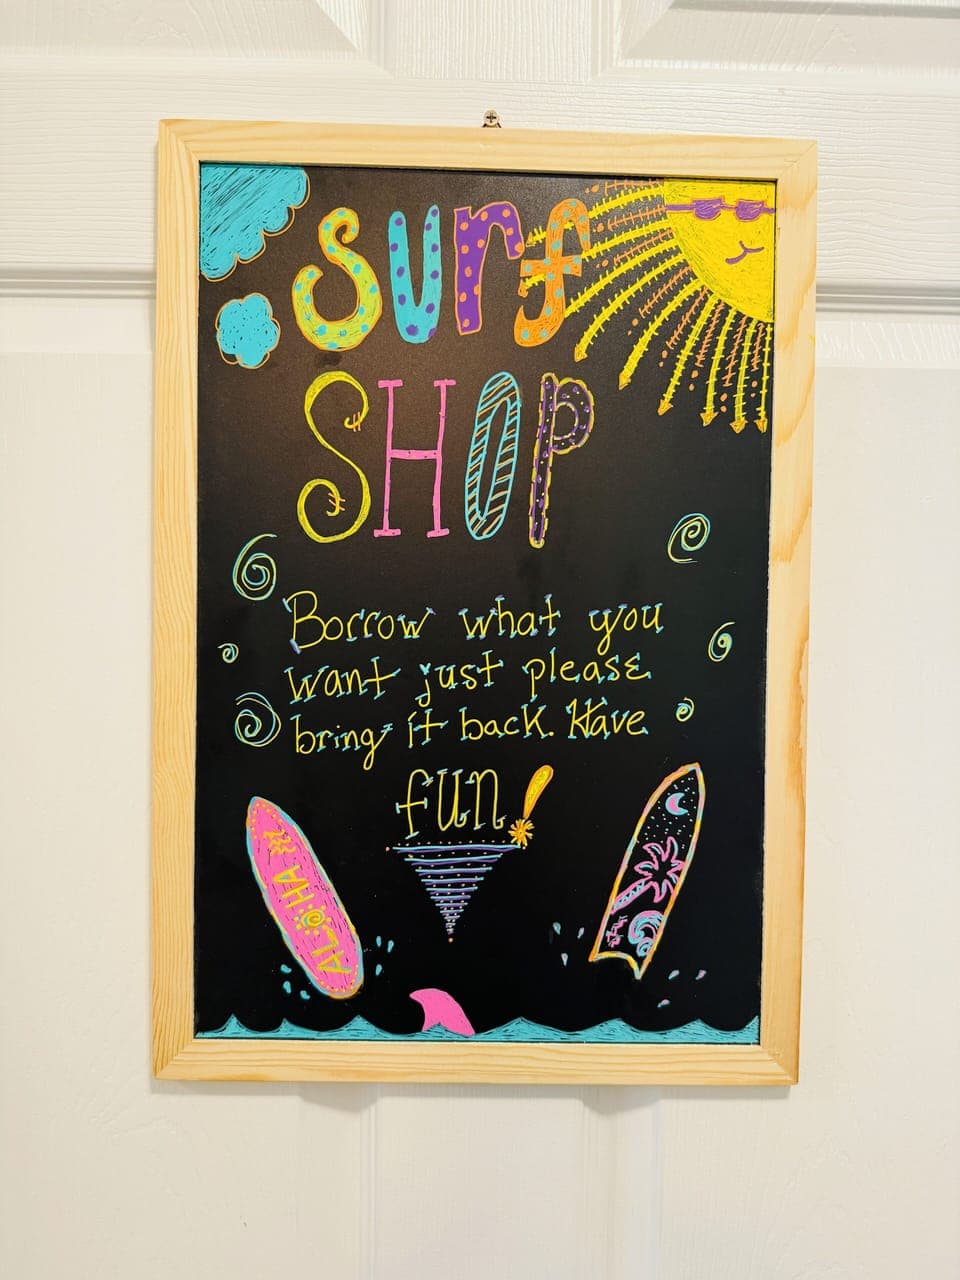 surf
SHOP
Borrow what you
want just please
bring it back. Have
fun!
ALOHA